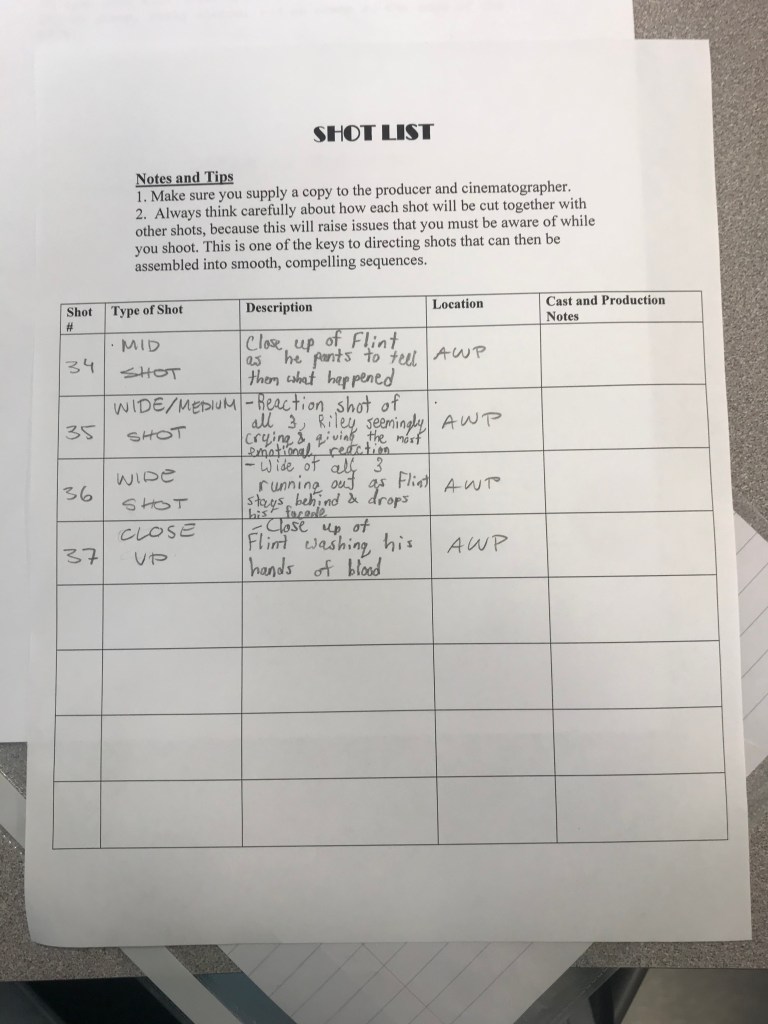 SHOT LIST
Notes and Tips
1. Make sure you supply a copy to the producer and cinematographer.
2. Always think carefully about how each shot will be cut together with
other shots, because this will raise issues that you must be aware of while
you shoot. This is one of the keys to directing shots that can then be
assembled into smooth, compelling sequences.
Shot # Type of Shot Description Location Cast and Production Notes
34
MID
SHOT
Close up of Flint
as he pants to tell
them what happened
AWP
35
WIDE/MEDIUM
SHOT
- Reaction shot of
all 3, Riley seemingly
crying & giving the most
emotional reaction
AWP
36
WIDE
SHOT
- Wide of all 3
running out as Flint
stays behind & drops
his facade
AWP
37
CLOSE
UP
- Close up of
Flint washing his
hands of blood
AWP